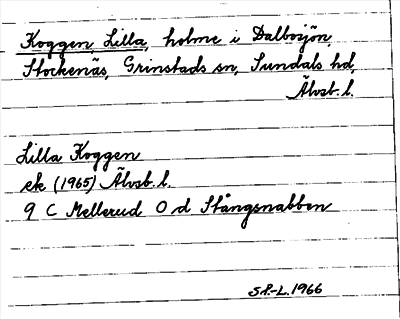 Koggen, Lilla, holme i Dalbosjön,
Stockenäs, Grinstads sn, Sundals hd,
Älvsb. l.
Lilla Koggen
ek (1965) Älvsb. l.
9 C Mellerud O d Stångsnabben
S.P.-L. 1966